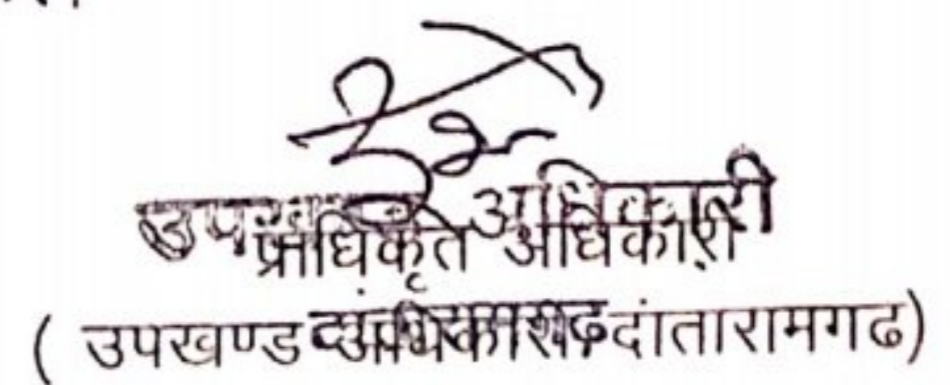 उपखण्ड अधिकारी
प्राधिकृत अधिकारी
( उपखण्ड अधिकारी दांतारामगढ)